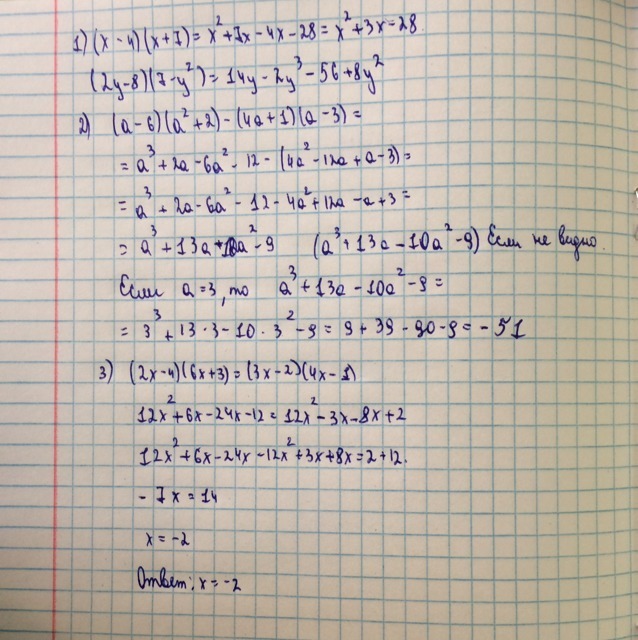 1) (x - 4)(x + 7) = x² + 7x - 4x - 28 = x² + 3x - 28.
(2y - 8)(7 - y²) = 14y - 2y³ - 56 + 8y²
2) (a - 6)(a² + 2) - (4a + 1)(a - 3) =
= a³ + 2a - 6a² - 12 - (4a² - 12a + a - 3) =
= a³ + 2a - 6a² - 12 - 4a² + 12a - a + 3 =
= a³ + 13a - 10a² - 9 (a³ + 13a - 10a² - 9) Если не видно.
Если a = 3, то a³ + 13a - 10a² - 9 =
= 3³ + 13 · 3 - 10 · 3² - 9 = 9 + 39 - 90 - 9 = - 51
3) (2x - 4)(6x + 3) = (3x - 2)(4x - 1)
12x² + 6x - 24x - 12 = 12x² - 3x - 8x + 2
12x² + 6x - 24x - 12x² + 3x + 8x = 2 + 12.
- 7x = 14
x = -2
Ответ: x = -2